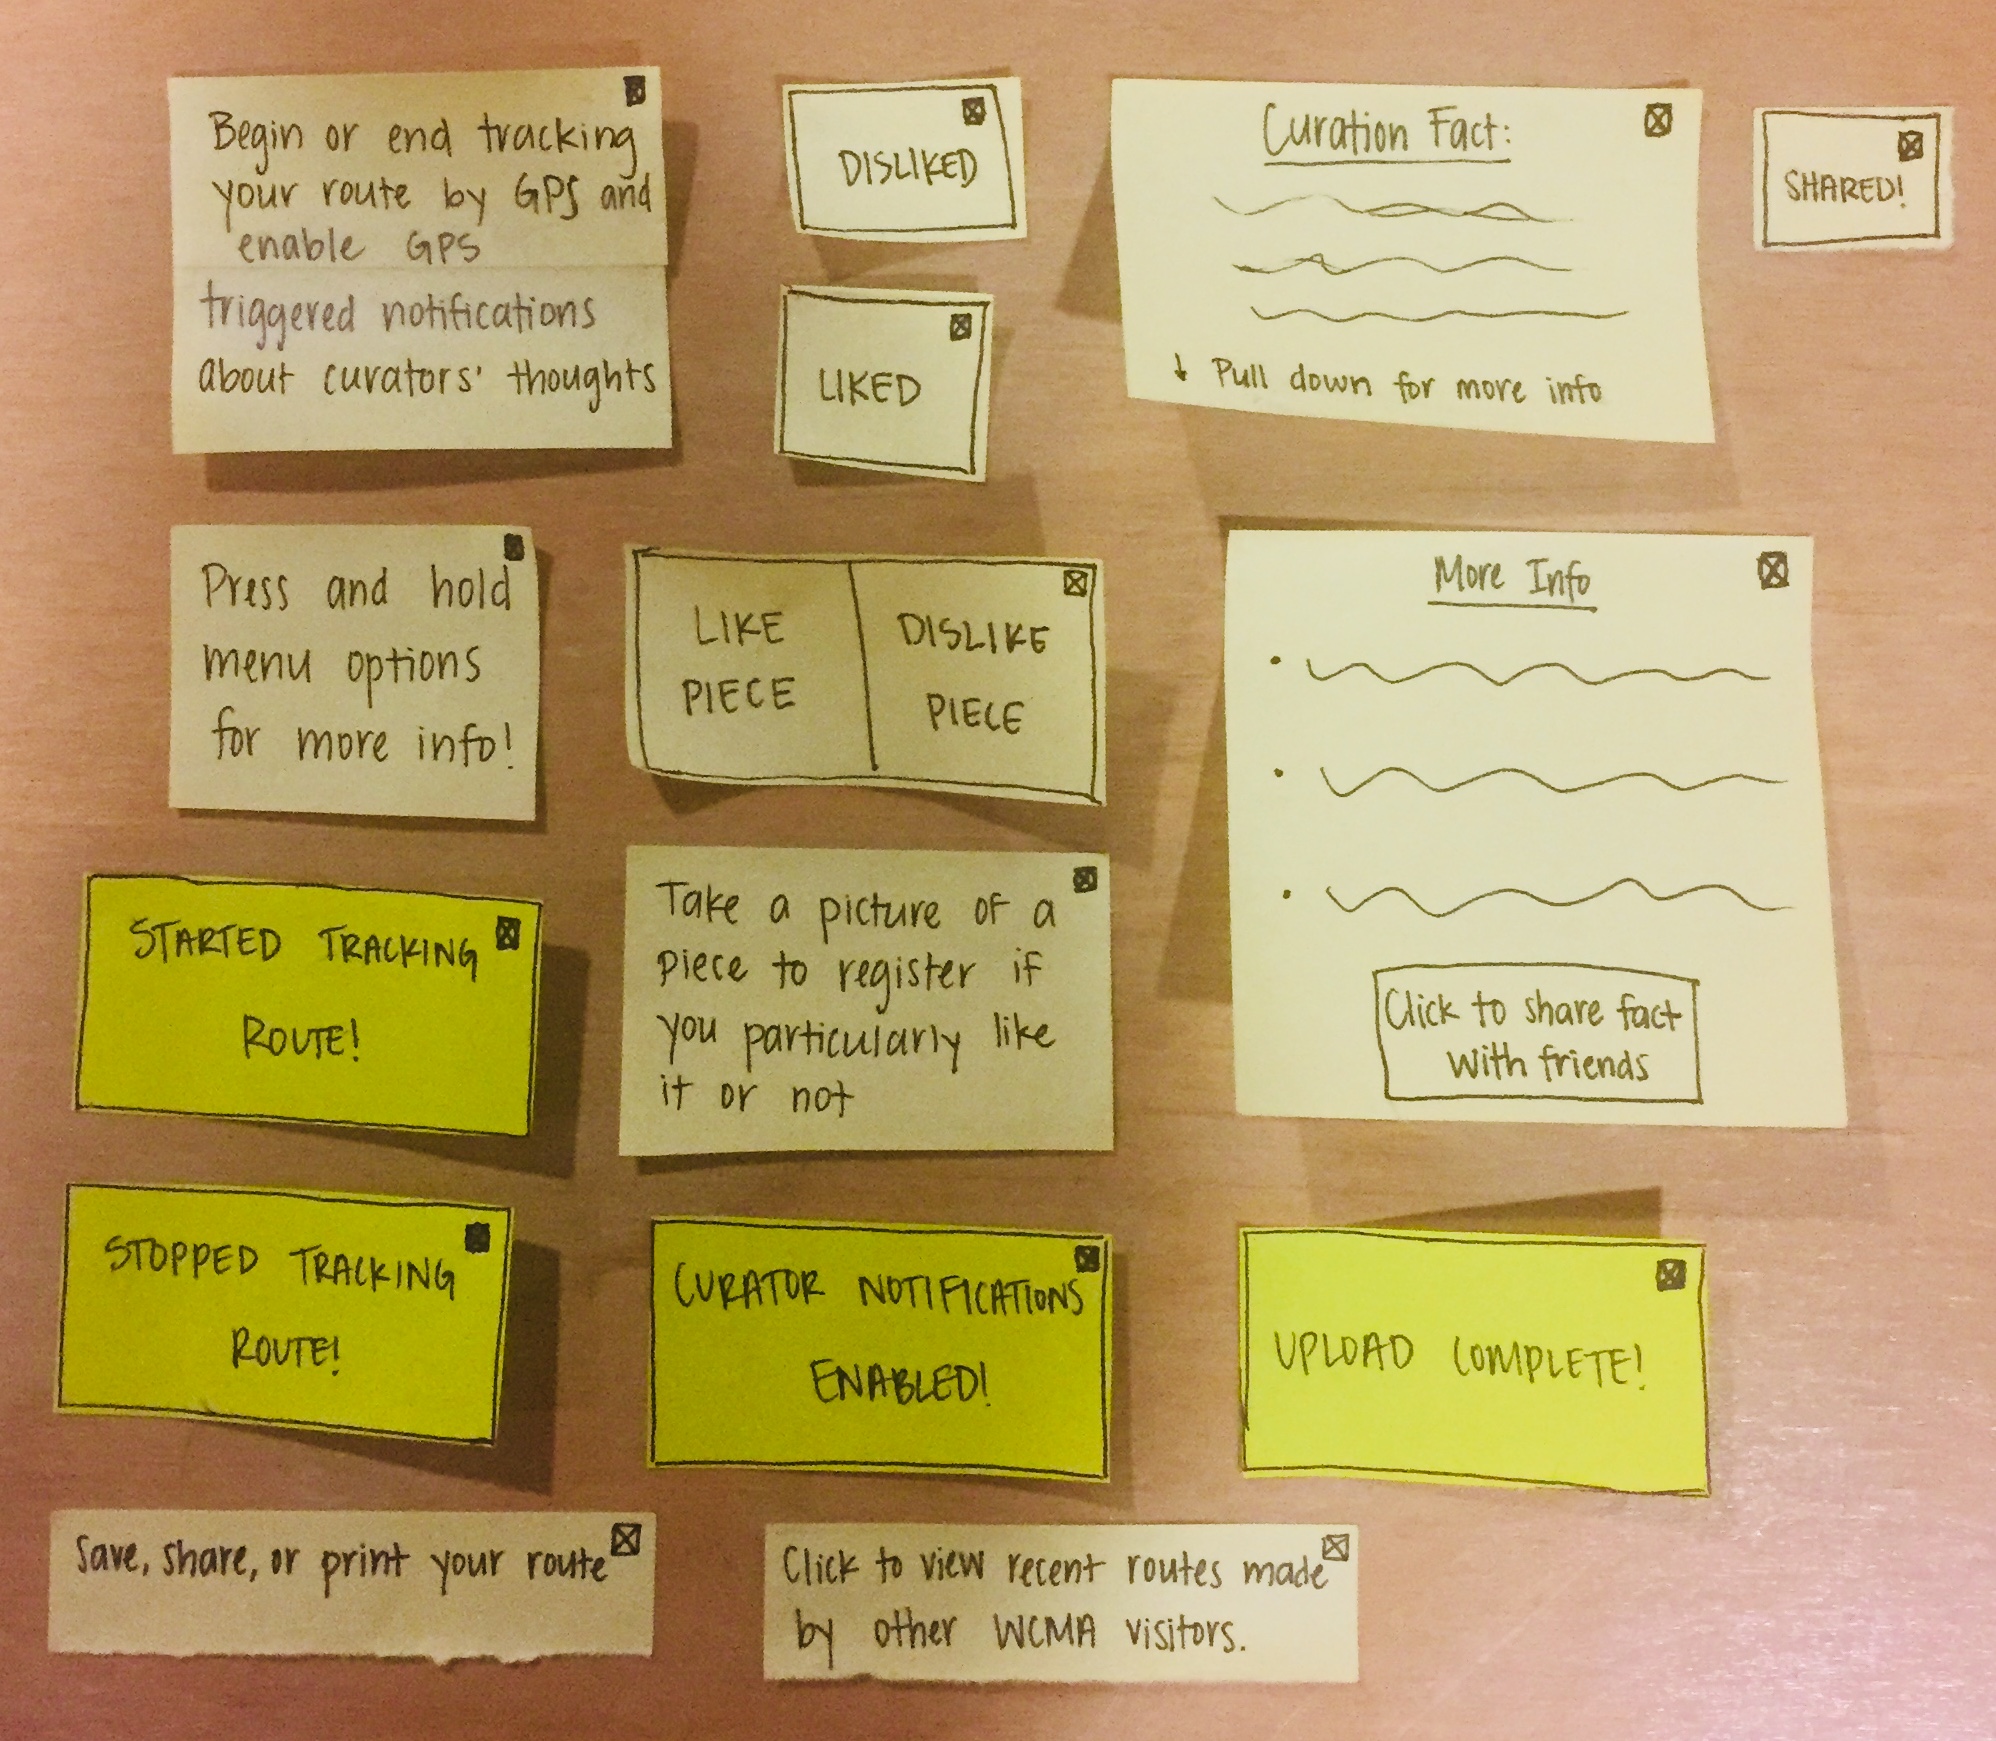 Begin or end tracking
your route by GPS and
enable GPS
triggered notifications
about curators' thoughts
DISLIKED
LIKED
Curation Fact:
↓ Pull down for more info
SHARED!
Press and hold
menu options
for more info!
LIKE
PIECE
DISLIKE
PIECE
More Info
Click to share fact
with friends
STARTED TRACKING
ROUTE!
Take a picture of a
piece to register if
you particularly like
it or not
STOPPED TRACKING
ROUTE!
CURATOR NOTIFICATIONS
ENABLED!
UPLOAD COMPLETE!
Save, share, or print your route
Click to view recent routes made
by other WCMA visitors.